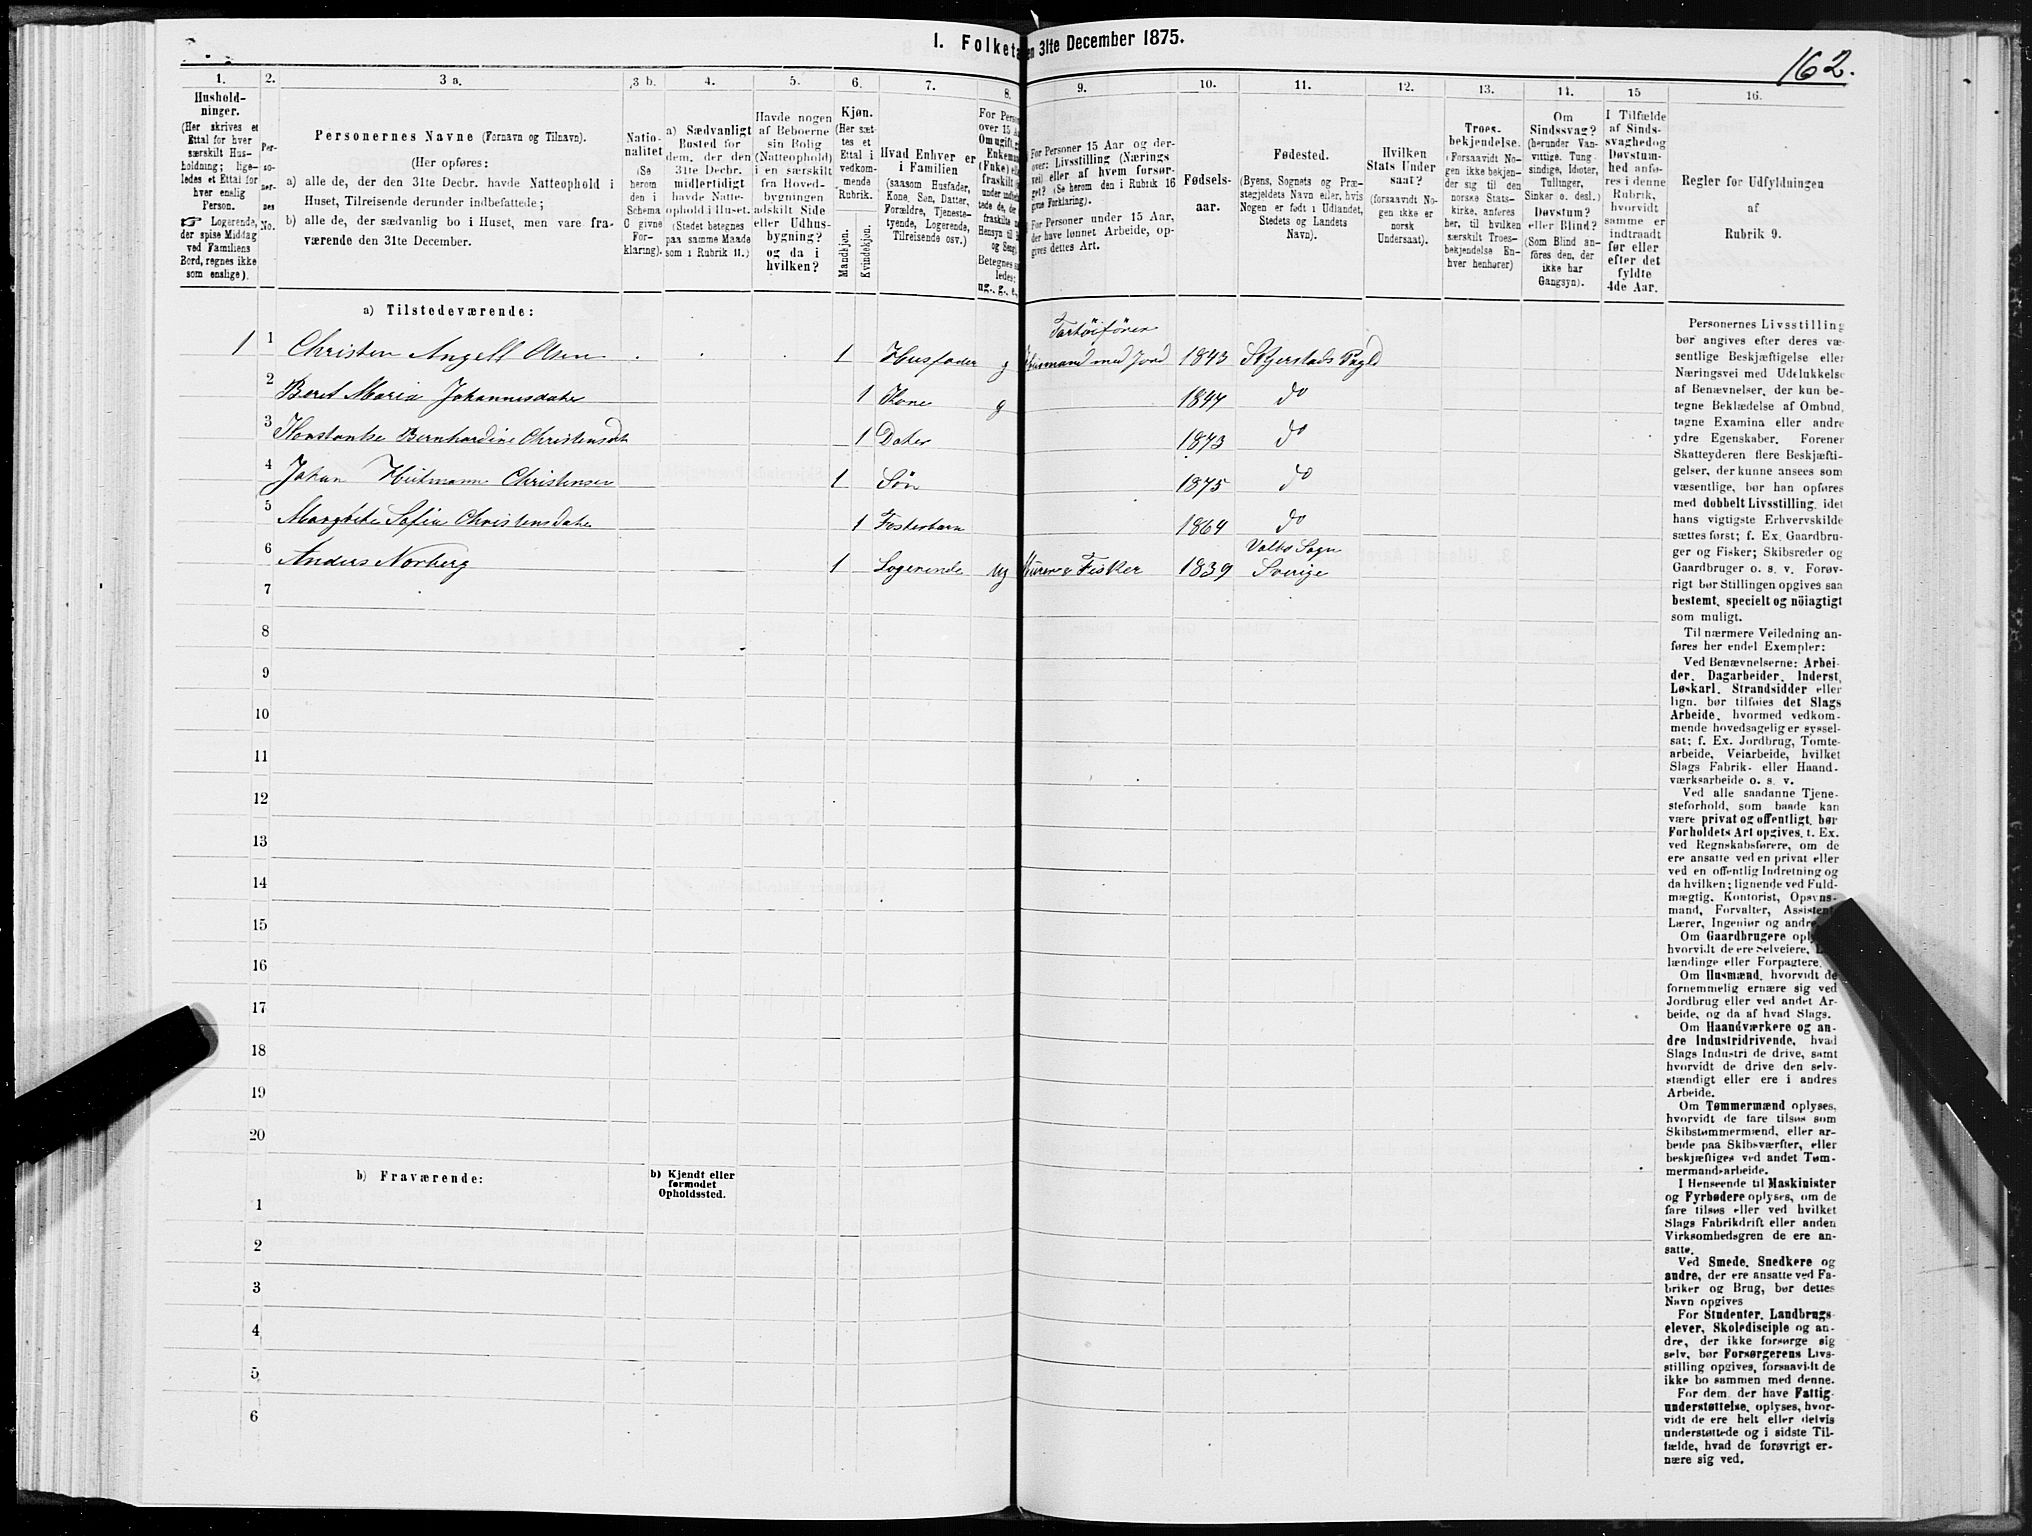 I. Folketa en 31te December 1875.
162.
1. 2. 3 a. 3 b. 4. 5. 6. 7. 8. 9. 10. 11. 12. 13. 14. 15 16.
Hushold-
ninger.
(Her skrives et
Ettal for hver
særskilt Hus-
holdning; lige-
ledes et Ettal for
hver enslig
Person.
☞ Logerende,
der spise Middag
ved Familiens
Bord, regnes ikke
som enslige).
Per-
so-
ner-
nes
No.
Personernes Navne (Fornavn og Tilnavn).
(Her opføres:
a) alle de, der den 31te Decbr. havde Natteophold i
Huset, Tilreisende derunder indbefattede;
b) alle de, der sædvanlig bo i Huset, men vare fra-
værende den 31te December.
Natio-
nalitet
(Se
herom
den i
Schema
C givne
For-
klaring).
a) Sædvanligt
Bosted for
dem, der den
31te Decbr.
midlertidigt
havde Natte-
ophold i Huset.
(Stedet betegnes
paa samme Maade
som i Rubrik 11.)
Havde nogen
af Beboerne
sin Bolig
(Natteophold)
i en særskilt
fra Hoved-
bygningen
adskilt Side
eller Udhus-
bygning?
og da i
hvilken?
Kjøn.
(Her sæt-
tes et
Ettal i
vedkom-
mende
Rubrik.
Mandkjøn.
Kvindekjøn.
Hvad Enhver er
i Familien
(saasom Husfader,
Kone, Søn, Datter,
Forældre, Tjeneste-
tyende, Logerende,
Tilreisende osv.)
For Person
over 15 Aa
Om ugift, g
Enkeman
(Fnke) elle
fraskilt
ledes:
ug., g., e.,
For Personer 15 Aar og der-
over: Livsstilling (Nærings
vei) eller af hvem forsør-
get? (Se herom den i Rubrik 16
givne Forklaring).
For Personer under 15 Aar,
der have lønnet Arbeide, op-
gives dettes Art.
Fødsels-
aar.
Fødested.
(Byens, Sognets og Præ-
stegjeldets Navn eller, hvis
Nogen er født i Udlandet,
Stedets og Landets
Navn).
Hvilken
Stats Under
saat?
(forsaavidt No-
gen ikke er
norsk
Undersaat).
Troes-
bekjendelse.
(Forsaavidt No-
gen ikke bekjen-
der sig til den
norske Stats-
kirke, anføres
her, til hvilken
særskilt Troes-
bekjendelse En-
hver henhører)
Om
Sindssvag?
(herunder Van-
vittige, Tung
sindige, Idioter,
Tullinger,
Sinker o. desl.)
Døvstum?
eller Blind?
(Som Blind an-
føres den, der
ikke har
Gangsyn).
I Tilfælde
af Sinds-
svaghed og
Døvstum-
hed anfø-
res i denne
Rubrik,
hvorvidt
samme er
indtraadt
før eller
efter det
fyldte
4de Aar.
Regler for Udfyldningen
af
Rubrik 9.
a) Tilstedeværende:
Fartöiförer
1 1 Christen Angell Olsen 1 Husfader g Husmand med Jord 1843 Stjerstads Pgld
2 Beret Maria Johannesdater 1 Kone g 1847 do
3 Konstantse Bernhardine Christensdt 1 Dater 1873 do
4 Johan Hitmann Christensen 1 Søn 1875 do
5 Margrete Sofie Christensdater 1 Fosterbarn 1864 do
Valbo Sogn
6 Anders Norberg 1 Logerende ug Murer & Fisker 1839 Sverige
7
8
9
10
11
12
13
14
15
16
17
18
19
20
b) Fraværende:
b) Kjendt eller
formodet
Opholdssted.
1
2
3
4
5
6
Personernes Livsstilling
bør angives efter deres væ-
sentlige Beskjæftigelse eller
Næringsvei med Udelukkelse
af Benævnelser, der kun be-
tegne Beklædelse af Ombud,
tagne Examina eller andre
ydre Egenskaber. Forener
Skatteyderen flere Beskjæfti-
gelser, der kunne ansees som
væsentlige, bør han opføres
med dobbelt Livsstilling, idet
hans vigtigste Erhvervskilde
sættes først; f. Ex. Gaardbru-
ger og Fisker; Skibsreder og
Gaardbruger o. s. v. Forøv-
rigt bør Stillingen opgives saa
bestemt, specielt og nöiagtigt
som muligt.
Til nærmere Veiledning an-
føres her endel Exempler:
Ved Benævnelserne: Arbei-
der, Dagarbeider, Inderst,
Løskarl, Strandsidder eller
lign. bør tilføies det Slags
Arbeide, hvormed vedkom-
mende hovedsagelig er syssel-
sat; f. Ex. Jordbrug, Tomte-
arbeide, Veiarbeide, hvilket
Slags Fabrik- eller Haand-
værksarbeide o. s. v.
Ved alle saadanne Tjene-
steforhold, som baade kan
være privat og offentligt, bør
Forholdets Art opgives, t. Ex.
ved Regnskabsførere, om de
ere ansatte ved en privat eller
ved en offentlig Indretning og
da hvilken; lignende ved Fuld-
mægtig, Kontorist, Opsyns-
mand, Forvalter, Assistent,
Lærer, Ingeniør og andre.
Om Gaardbrugere oply
hvorvidt de ere Selveiere,
lændinge eller Forpagtere.
Om Husmænd, hvorvidt de
fornemmelig ernære sig ved
Jordbrug eller ved andet Ar-
beide, og da af hvad Slags.
Om Haandværkere og an-
dre Industridrivende, hvad
Slags Industri de drive, samt
hvorvidt de drive den selv-
stændigt eller ere i andres
Arbeide.
Om Tømmermænd oplyses,
hvorvidt de fare tilsøs som
Skibstømmermænd, eller ar-
beide paa Skibsværfter, eller
beskjæftiges ved andet Tøm-
mermandsarbeide.
I Henseende til Maskinister
og Fyrbødere oplyses, om de
fare tilsøs eller ved hvilket
Slags Fabrikdrift eller anden
Virksomhedsgren de ere an-
satte.
Ved Smede, Snedkere og
andre, der ere ansatte ved Fa-
briker og Brug, bør dettes
Navn opgives
For Studenter, Landbrugs-
elever, Skoledisciple og an-
dre, der ikke forsørge sig
selv, bør Forsørgerens Livs-
stilling opgives, forsaavidt de
ikke bo sammen med denne.
For dem, der have Fattig-
understøttelse, oplyses, hvor-
vidt de ere helt eller delvis
understøttede og i sidste Til-
fælde, hvad de forøvrigt er-
nære sig ved.